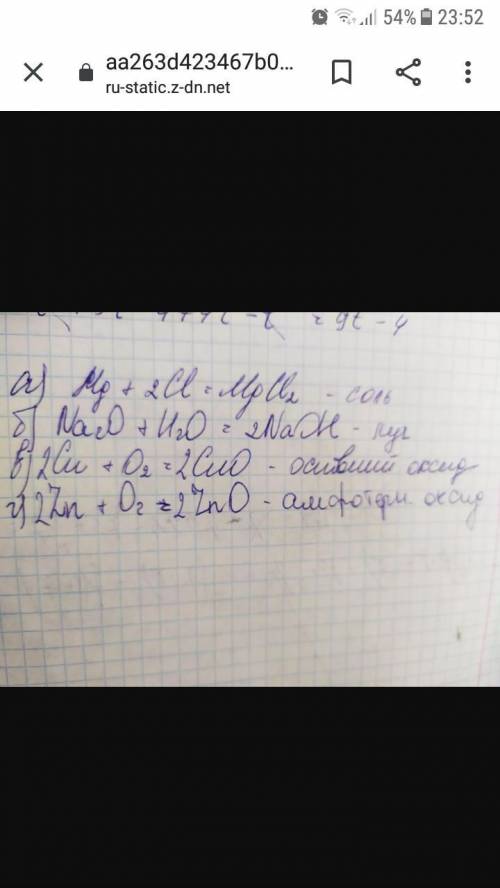 23:52
54%
aa263d423467b0...
ru-static.z-dn.net
= 9t - 4
а) Mg + 2Cl = MgCl₂ - соль
б) Na₂O + H₂O = 2NaOH - луг
в) 2Cu + O₂ = 2CuO - оксид
г) 2Zn + O₂ = 2ZnO - амфотерн оксид